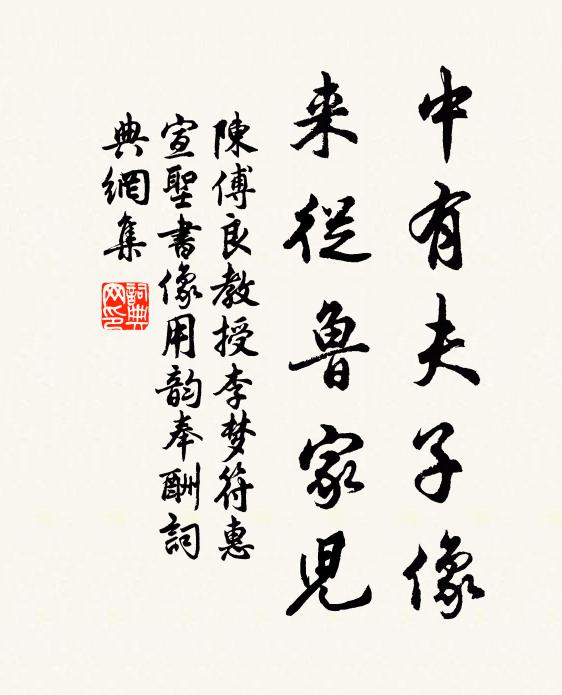 中有夫子像
来從魯家児
陳傅良教授李梦符惠
宣聖書像用韵奉酬詞
典網集
詞典网印